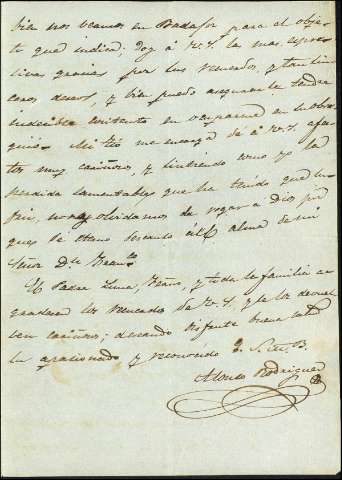 bien nos veamos en Badajoz para el obje-
to que indica; doy á V.S. las mas espre-
sivas gracias por sus recuerdos, y tan sin-
ceros deseos, y bien puedo asegurarle tendra
indecible contento en ocuparme en su obse-
quio. Mi tio me encarga dé á V.S. afec-
tos muy cariñosos, y sintiendo como yo la
perdida lamentable que ha tenido que su-
frir, no nos olvidamos de rogar á Dios por
que dé eterno descanso al alma de mi
Señor Dn. Franco.
El Padre Luna, y toda la familia a-
gradecen los recuerdos de V.S. y se los devuel-
ven cariñosos; deseando disfrute buena salud
su apasionado y reconocido Q. S. M. B.
Alonso Rodriguez